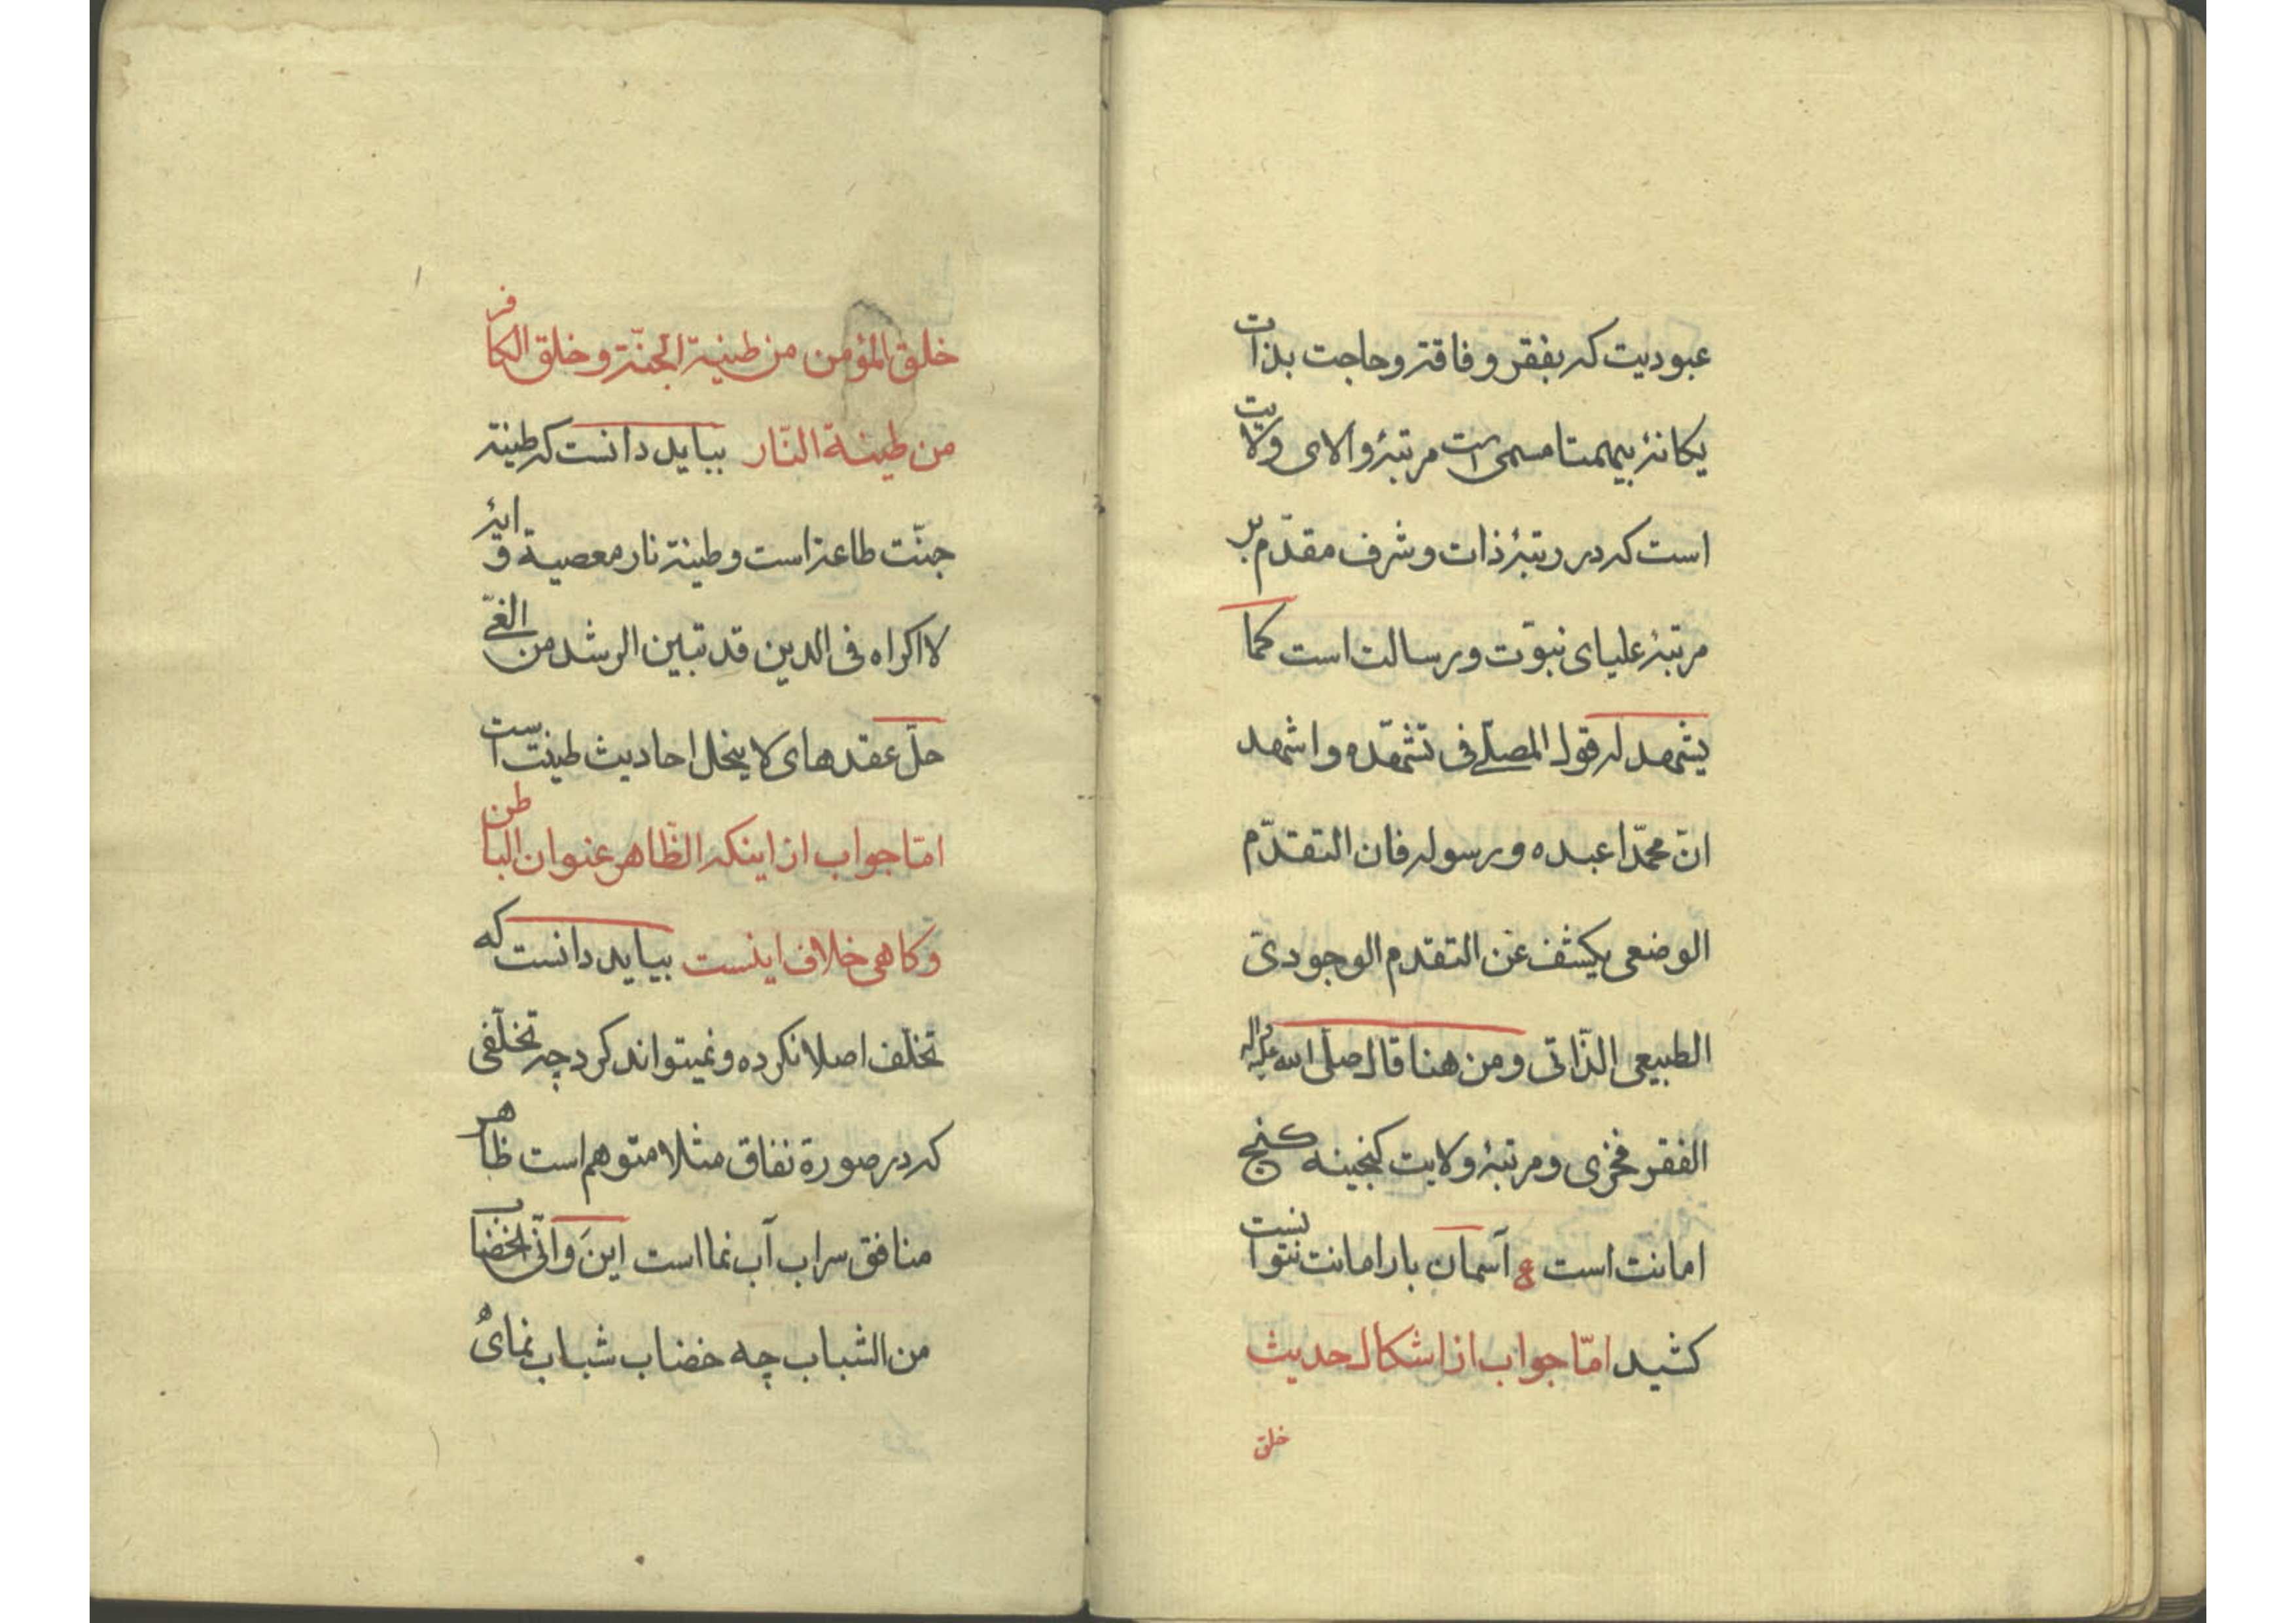 عبودیت که بفقر و فاقة و حاجت بذات
یکانهٔ بیهمتا مسمی است مرتبهٔ والای ولایت
است که در رتبهٔ ذات و شرف مقدّم بر
مرتبهٔ علیای نبوّت و رسالت است کما
یشهد له قول المصلّے فی تشهّده و اشهد
انّ محمّدا عبده و رسوله فان التقدّم
الوضعی یکشف عن التقدم الوجودی
الطبیعی الذّاتی و من هنا قال صلی الله علیه و اله
الفقر فخری و مرتبهٔ ولایت کنجینه کنج
امانت است ع آسمان بار امانت نتوانست
کشید امّا جواب از اشکال حدیث
خلق
خلق المؤمن من طینة الجنّة و خلق الکافر
من طینة النّار بباید دانست که طینة
جنّت طاعة است و طینة نار معصیة و ایهٔ
لا اکراه فی الدین قد تبین الرشد من الغیّ
حلّ عقدهای لا ینحل احادیث طینت است
امّا جواب از اینکه الظّاهر عنوان الباطن
و کاهی خلاف اینست بباید دانست که
تخلّف اصلا نکرده و نمیتواند کرد چه تخلّفی
که در صورة نفاق مثلا متوهم است ظاهر
منافق سراب آب نما است اینَ و انّی الخضاب
من الشباب چه خضاب شباب نمای